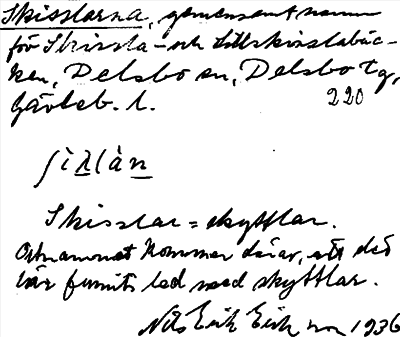 Skisslarna, gemensamt namn
för Skissla- och Lillskisslabäc-
ken, Delsbo sn, Delsbo tg,
Gävleb. l. 220
Skisslar = skyttlar.
Ortnamnet kommer därav, att det
här funnits led med skyttlar.
Nils Erik Erik son 1936